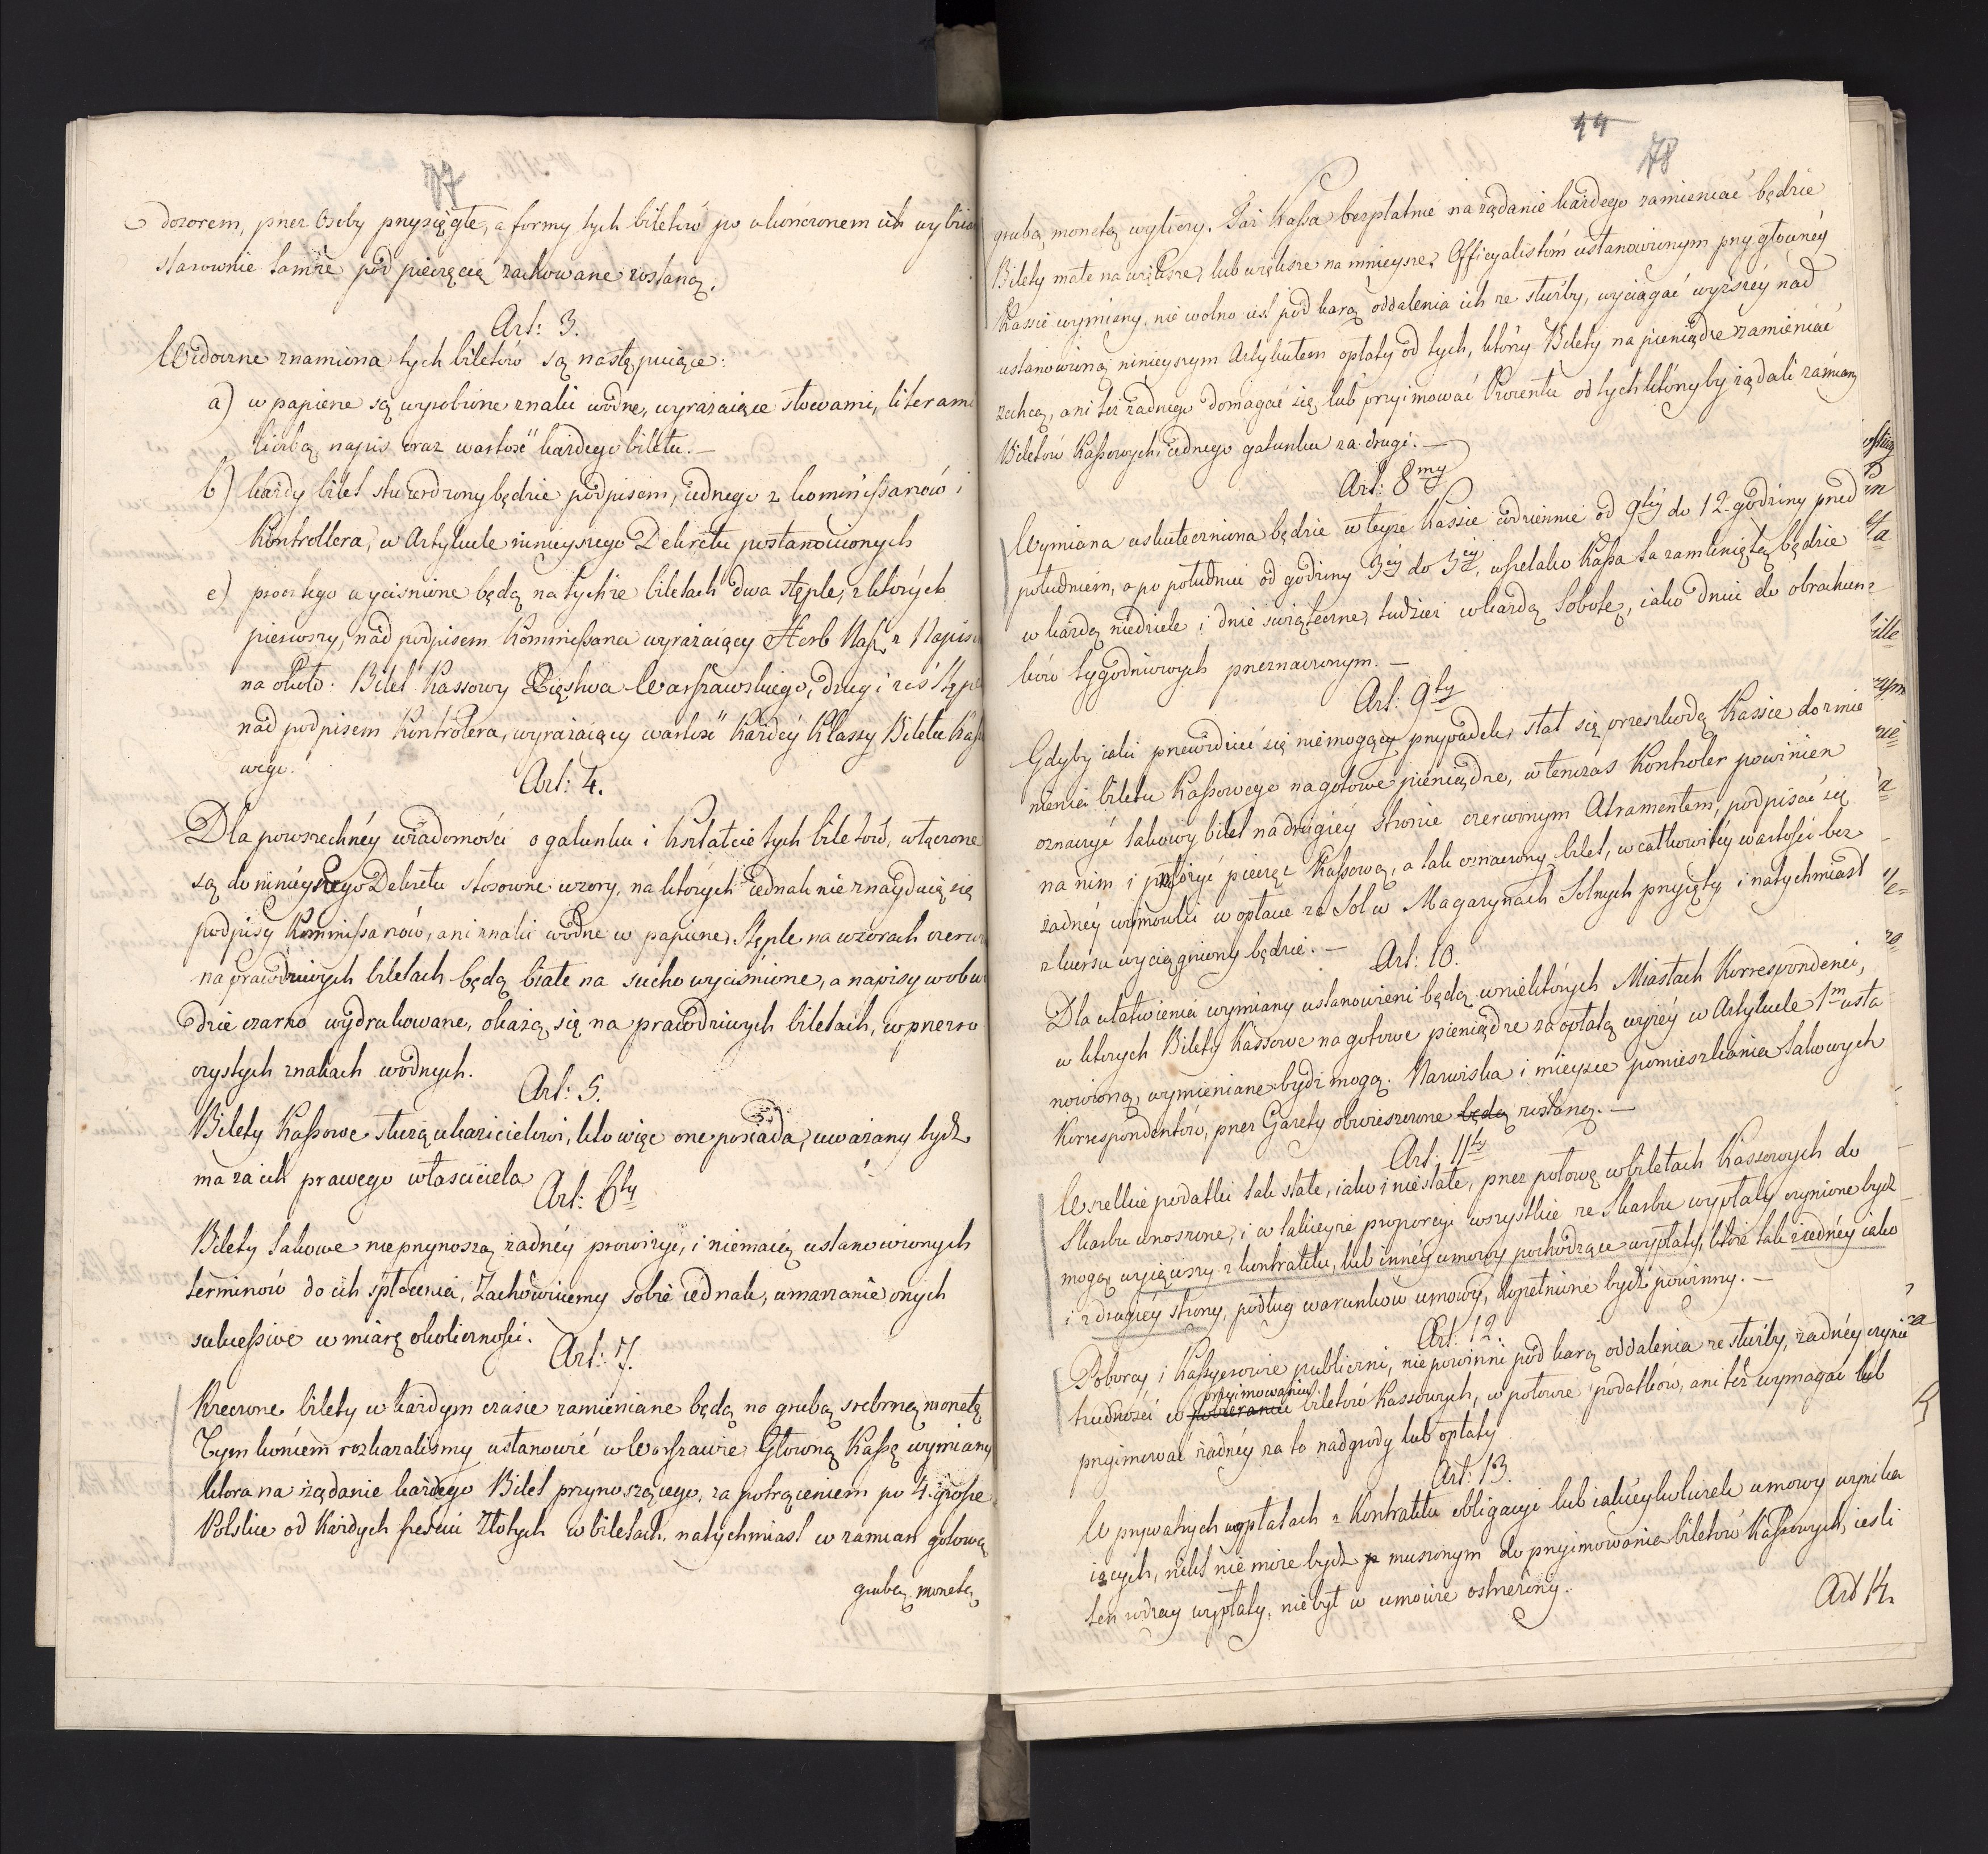 77
dozorem, przez Osoby przysięgłe, a formy tych biletów po ukończonem ich wybiciu
starownie tamże pod pieczęcią zachowane zostaną.
Art: 3.
Widoczne znamiona tych biletów są następuiące:
a) w papierze są wyrobione znaki wodne, wyrażaiące słowami, literami
liczbą, napis oraz wartość każdego biletu. —
b) każdy bilet stwierdzony będzie podpisem, iednego z kommissarzów i
Kontrollera, w Artykule ninieyszego Dekretu postanowionych
c) prócz tego wyciśnione będą na tychże biletach dwa stęple, z których
pierwszy, nad podpisem Kommissarza wyrażaiący Herb Nasz z Napisem
na około: Bilet Kassowy Xięstwa Warszawskiego, drugi zaś Stępel
nad podpisem Kontrolera, wyrażaiący wartość Każdéy Klassy Biletu Kasso
wego.
Art: 4.
Dla powszechnéy wiadomości o gatunku i kształcie tych biletów, włączone
są do ninieyszego Dekretu stosowne wzory, na których iednak nie znayduią się
podpisy Kommissarzów, ani znaki wodne w papierze, Stęple na wzorach czerw
na prawdziwych biletach będą białe na sucho wyciśnione, a napisy w obw
dzie czarno wydrukowane, okażą się na prawdziwych biletach, w przezro
czystych znakach wodnych.
Art: 5.
Bilety Kassowe służą ukazicielowi, kto więc one posiada, uważany bydź
ma za ich prawego właściciela
Art: 6ty
Bilety takowe nie przynoszą żadnéy prowizyi, i niemaią ustanowionych
terminów do ich spłacenia, Zachowuiemy sobie iednak, umarzanie onych
sukcessive w miarę okoliczności.
Art: 7.
Rzeczone bilety w każdym czasie zamieniane będą na grubą srebrną monetę
Tym końcem rozkazaliśmy ustanowić w Warszawie Główną Kassę wymiany
która na żądanie każdego Bilet przynoszącego, za potrąceniem po 4. grosze
Polskie od Każdych sześciu Złotych w biletach, natychmiast w zamian gotową
grubą monetą
44
78
grubą monetą wyliczy. Taż Kassa bezpłatnie na żądanie każdego zamieniać będzie
Bilety małe na większe, lub większe na mnieysze. Officyalistóm ustanowionym przy główney
Kassie wymiany, nie wolno iest pod karą oddalenia ich ze służby, wyciągać wyższéy nad
ustanowioną ninieyszym Artykułem opłaty od tych, którzy Bilety na pieniądze zamieniać
zechcą, ani też żadnego domagać się lub przyimować Procentu od tych którzyby żądali zamiany
Biletów Kassowych iednego gatunku za drugi. —
Art: 8my
Wymiana uskuteczniona będzie w teyże Kassie codziennie od 9téy do 12. godziny przed
południem, a po południu od godziny 3éy do 5téy, wszelako Kassa ta zamkniętą będzie
w każdą niedzielę i dnie świąteczne, tudzież w każdą Sobotę, iako dniu do obrachun=
ków tygodniowych przeznaczonym. —
Art: 9ty
Gdyby iaki przewidzieć się niemogący przypadek, stał się przeszkodą Kassie do zmie
nienia biletu Kassowego na gotowe pieniądze, wtenczas Kontroler powinien
oznaczyć takowy bilet na drugiéy stronie czerwonym Atramentem, podpisać się
na nim i przyłożyć pieczęć Kassową, a tak oznaczony bilet, w całkowitéy wartości bez
żadnéy wymówki w opłacie za Sól w Magazynach Solnych przyięty i natychmiast
z kursu wyciągniony będzie. —
Art: 10.
Dla ułatwienia wymiany ustanowieni będą w niektórych Miastach Korrespondenci,
w których Bilety Kassowe na gotowe pieniądze za opłatą wyżéy w Artykule 1m usta
nowioną, wymieniane bydź mogą. Nazwiska i mieysce pomieszkania takowych
Korrespondentów, przez Gazety obwieszczone będą zostaną. —
Art: 11ty
Wszelkie podatki tak stałe, iako i niestałe, przez połowę w biletach Kassowych do
Skarbu wnoszone, i w takieyże proporcyi wszystkie ze Skarbu wypłaty czynione bydź
mogą, wyiąwszy z kontraktu, lub innéy umowy pochodzące wypłaty, które tak z iednéy iako
i z drugiéy strony, podług warunków umowy, dopełnione bydź powinny. —
Art: 12.
Poborcy i Kassyerowie publiczni, nie powinni pod karą oddalenia ze służby, żadnéy czynić
przyimowaniu
trudności w pobieraniu biletów Kassowych, w połowie podatków, ani też wymagać lub
przyimować żadnéy za to nadgrody lub opłaty
Art: 13.
W prywatnych wypłatach z Kontraktu obligacyi lub iakieykolwiek umowy wynika
iących, nikt nie może bydź p muszonym do przyimowania biletów Kassowych, ieśli
ten rodzay wypłaty, nie był w umowie ostrzeżony.
Art 14.